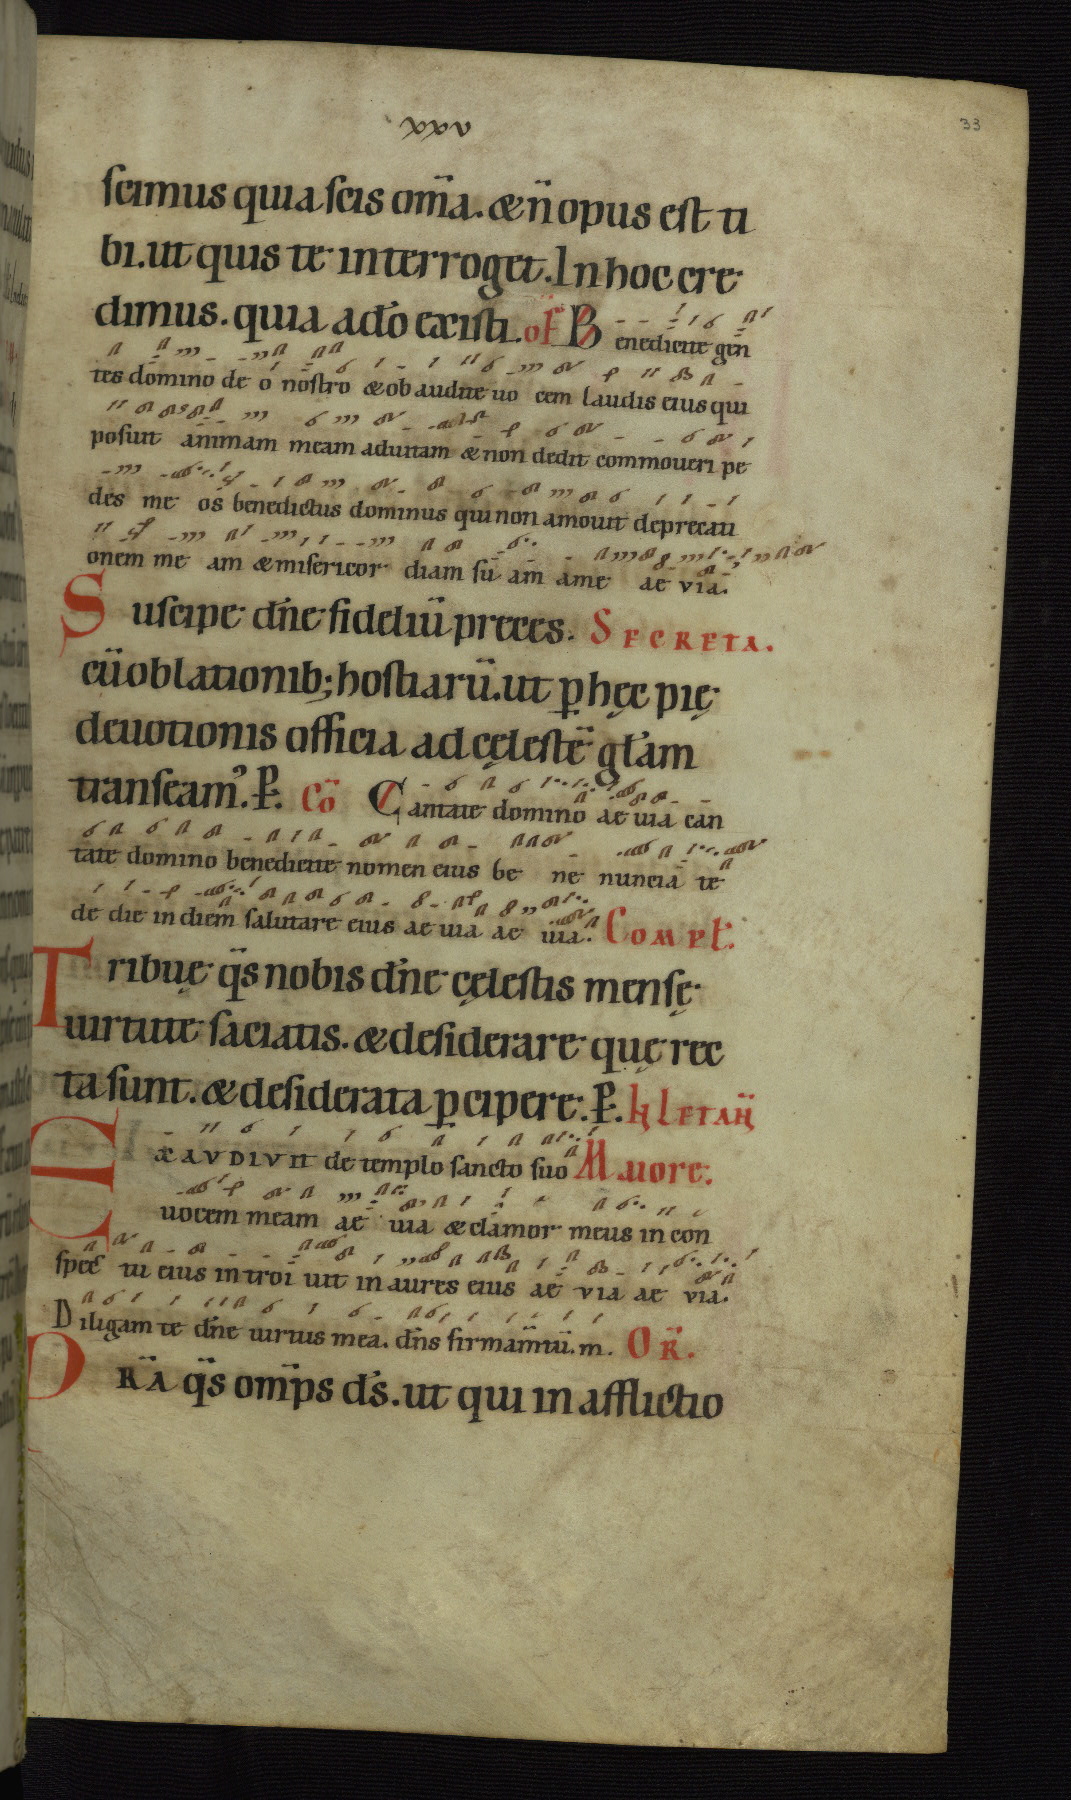 xxxv
33
scimus quia scis om̄a. & n̄ opus est ti
bi. ut quis te interroget. In hoc cre
dimus. quia a dō existi. of Benedicite gen̄
tes domino deo nostro & obaudite uocem laudis eius qui
posuit animam meam ad uitam & non dedit commoueri pe
des meos benedictus dominus qui non amouit deprecati
onem meam & misericordiam sūam̄ ame aeuia.
Suscipe dn̄e fideliū preces. SECRETA.
cū oblationib; hostiarū. ut p hęc pię
deuotionis officia ad cęlestē gl̄am
transeam'. P. Cō Cantate domino aeuia can
tate domino benedicite nomen eius bene nunciate
de die in diem salutare eius aeuia aeuia. Compl.
Tribuę q̄s nobis dn̄e cęlestis mensę
uirtute saciatis. & desiderare quę rec
ta sunt. & desiderata p cipere. P. IN LETAN
EXAVDIVIT de templo sancto suo Maiore.
uocem meam aeuia & clamor meus in con
spec̄tu eius introiuit in aures eius aeuia aeuia.
Diligam te dn̄e uirtus mea. dn̄s firmam̄tū. m. OR̄.
PR̄A q̄s om̄ps d̄s. ut qui in afflictio